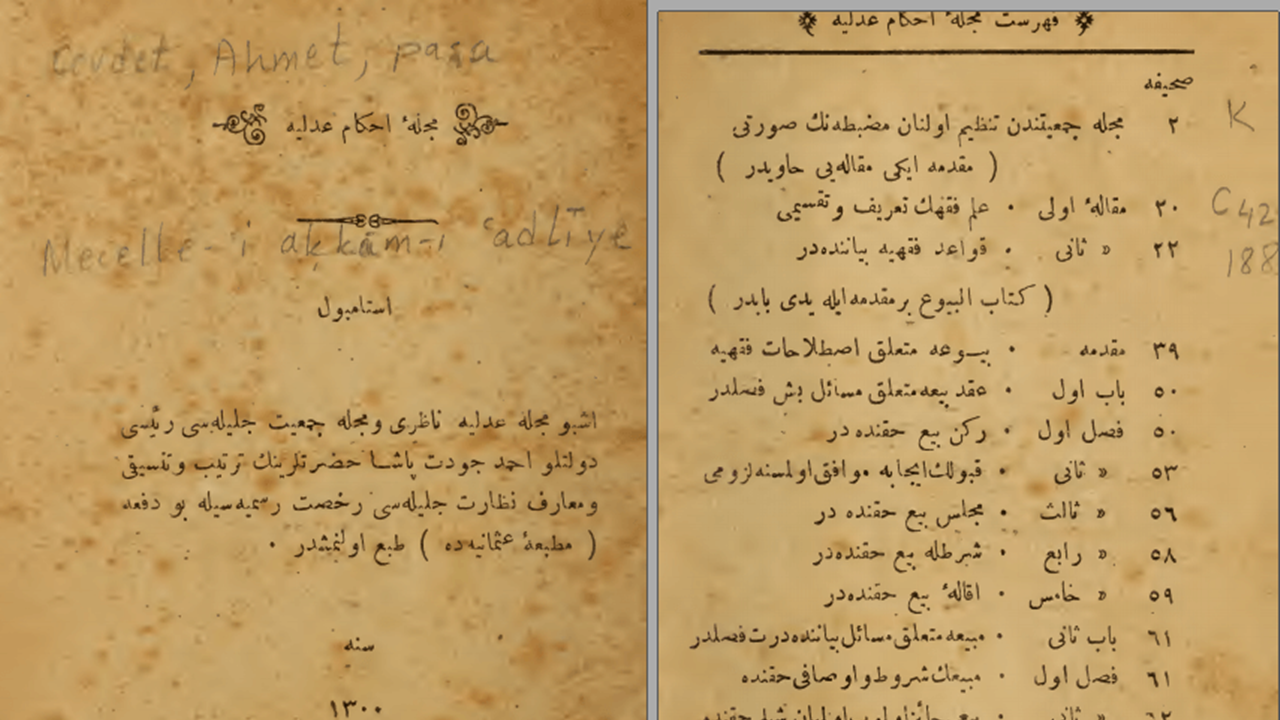 Cevdet, Ahmet, paşa
مجلهٔ احكام عدليه
Mecelle-'i aḥkām-ı ʿadlīye
استامبول
اشبو مجله عدليه ناظرى و مجله جمعيت جليله‌سى رئيسى
دولتلو احمد جودت پاشا حضرتلرينك ترتيب و تنسيقى
و معارف نظارت جليله‌سى رخصت رسميه‌سيله بو دفعه
( مطبعهٔ عثمانيه‌ده ) طبع اولنمشدر ٠
سنه
١٣٠٠
فهرست مجلهٔ احكام عدليه
صحيفه
٢ مجله جمعيتندن تنظيم اولنان مضبطه‌نك صورتى
( مقدمه ايكى مقاله‌يى حاويدر )
٢٠ مقالهٔ اولى ٠ علم فقهك تعريف و تقسيمى
٢٢ » ثانى ٠ قواعد فقهيه بياننده‌در
( كتاب البيوع بر مقدمه ايله يدى بابدر )
٣٩ مقدمه ٠ بيوعه متعلق اصطلاحات فقهيه
٥٠ باب اول ٠ عقد بيعه متعلق مسائل بش فصلدر
٥٠ فصل اول ٠ ركن بيع حقنده در
٥٣ » ثانى ٠ قبولك ايجابه موافق اولمسنه لزومى
٥٦ » ثالث ٠ مجلس بيع حقنده در
٥٨ » رابع ٠ شرطله بيع حقنده‌در
٥٩ » خامس ٠ اقالهٔ بيع حقنده‌در
٦١ باب ثانى ٠ مبيعه متعلق مسائل بياننده درت فصلدر
٦١ فصل اول ٠ مبيعك شروط و اوصافى حقنده
K
C42
188